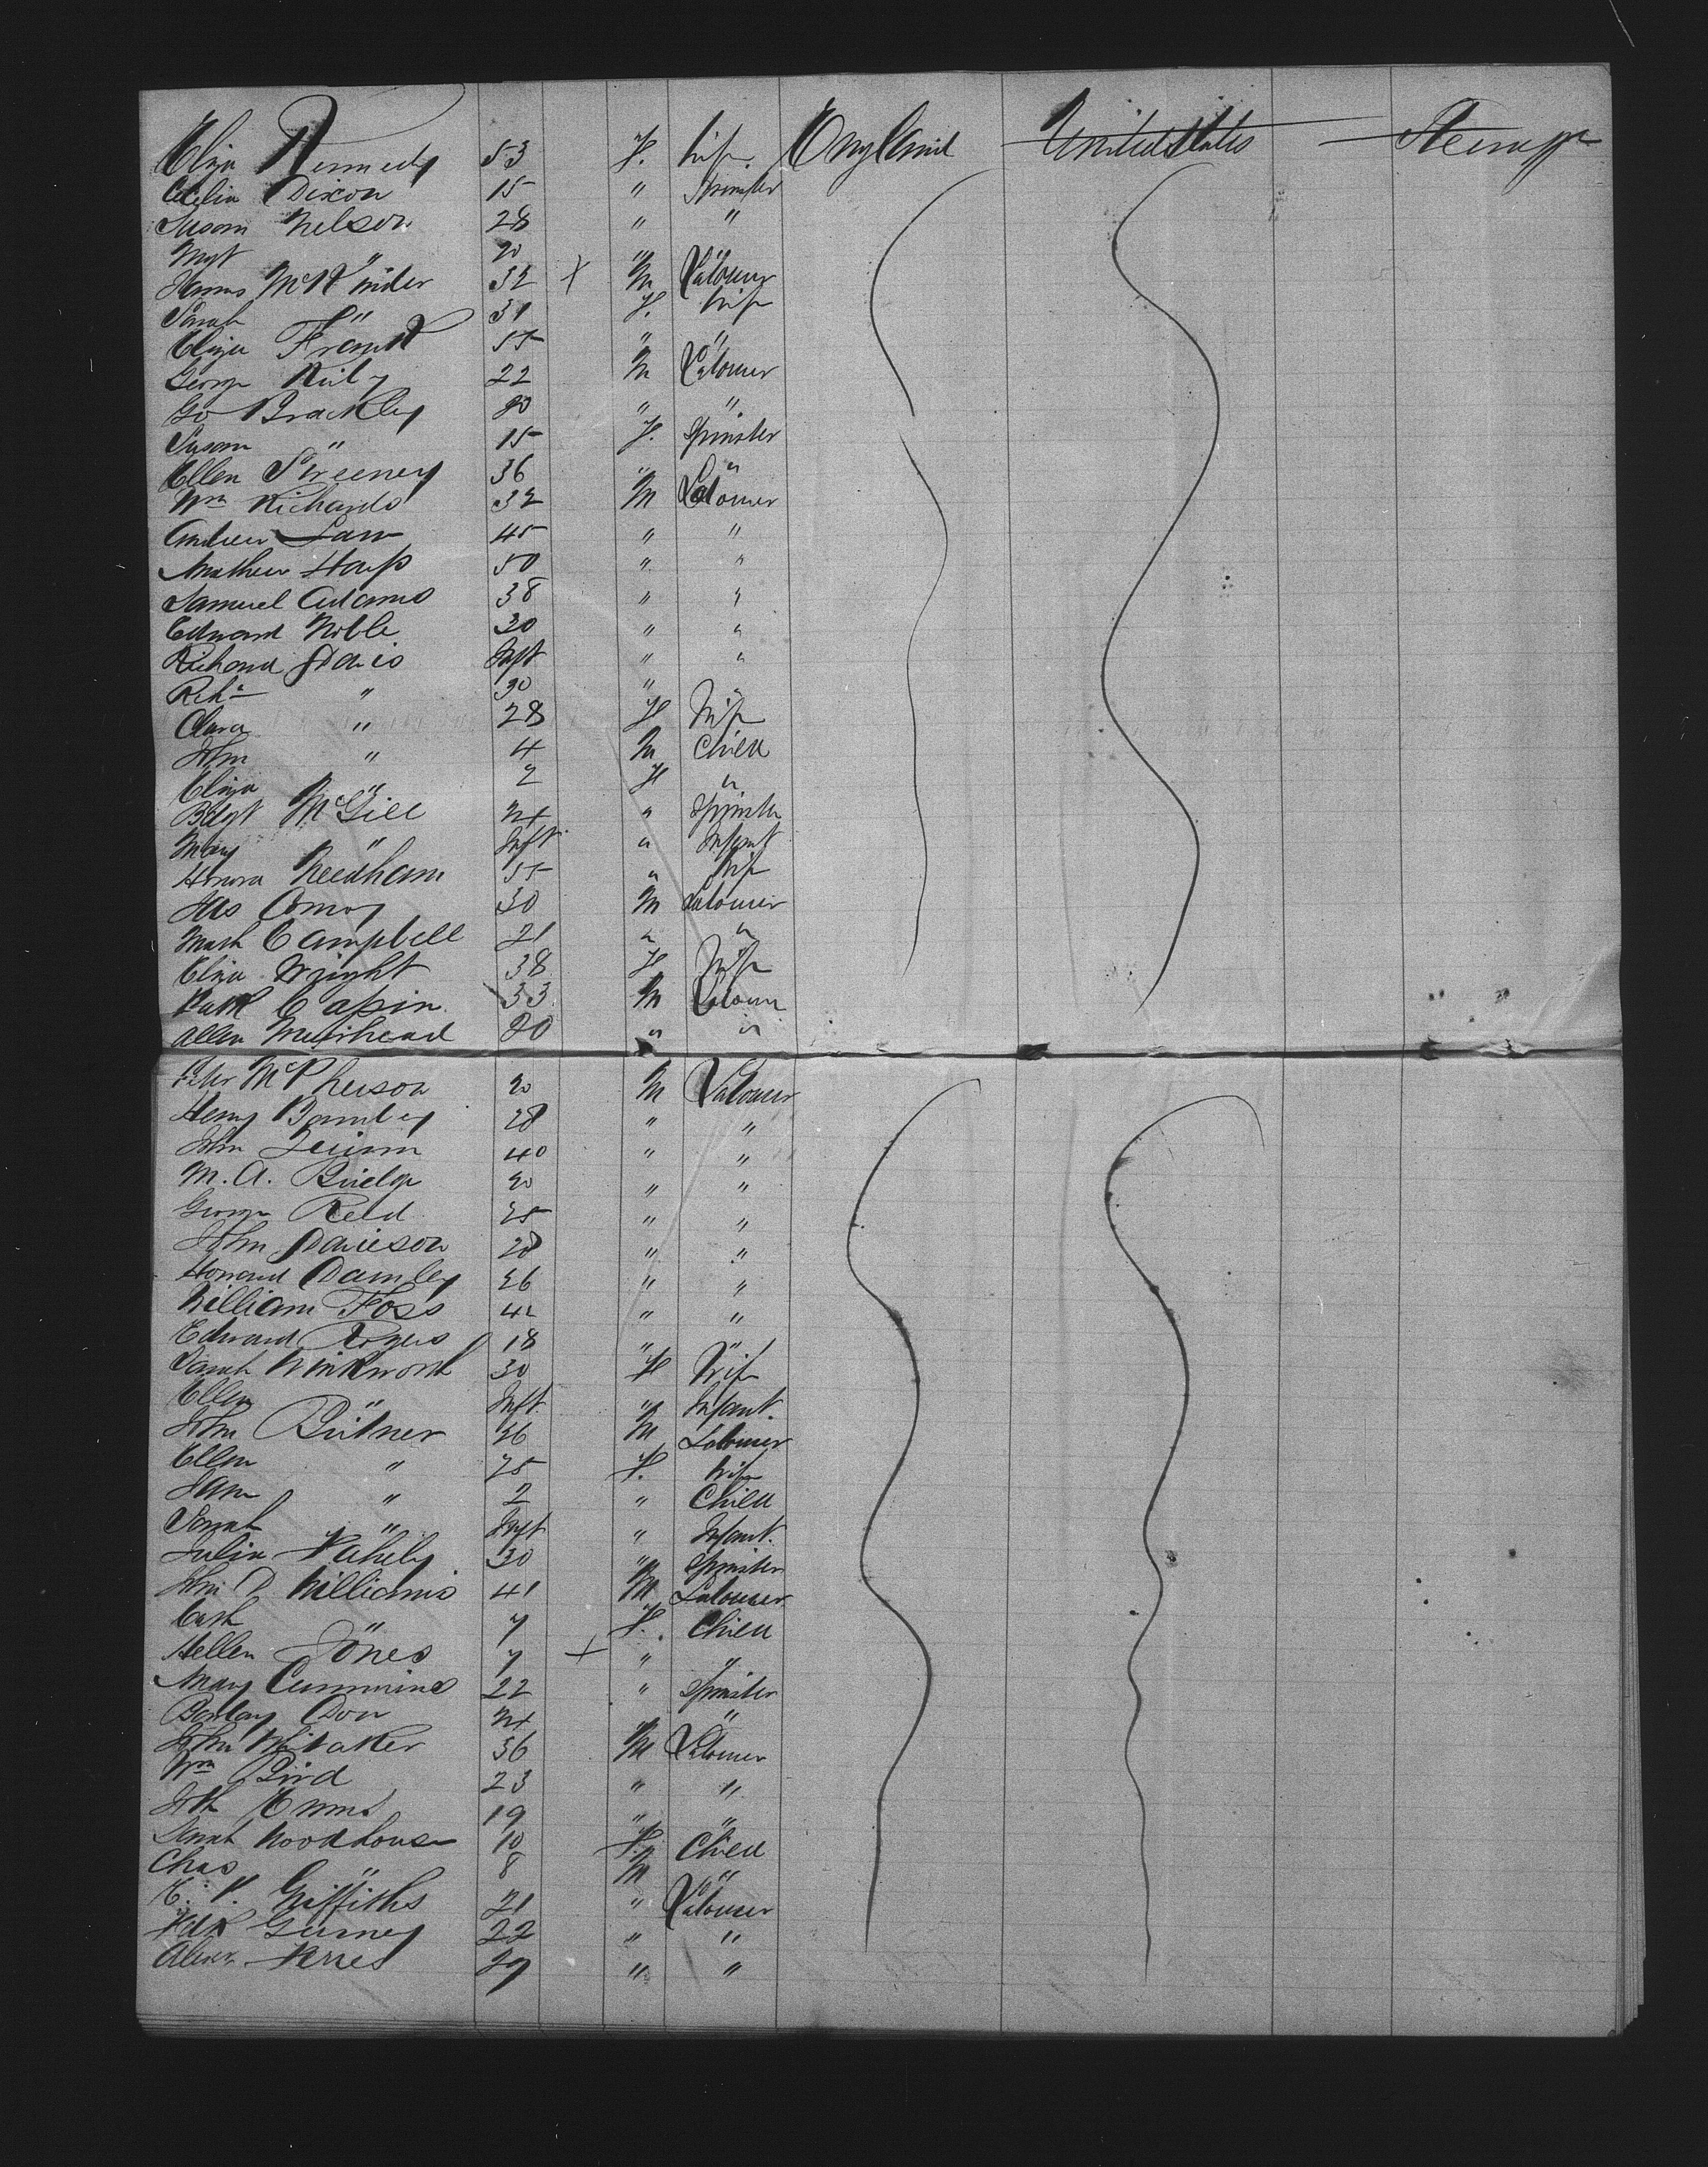 Eliza Kennedy 53 F. Wife England United States Steerage
Cecelia Dixon 15 " Spinster
Susan Nelson 28 " "
Mgt " 20 " "
James McK 32 X M Labourer
Sarah " 31 F. Wife
Eliza Frank 55 " "
George Kiely 22 M Labourer
Geo Brackley 20 " "
Susan " 15 F. Spinster
Ellen Sweeney 36 " "
Wm Richards 32 M Labourer
Andrew Law 45 " "
Mathew 50 " "
Samuel Adams 38 " "
Edward Noble 30 " "
Richard Davis Inft " "
Richd " 30 " "
Clara " 28 F Wife
John " 4 M Child
Eliza " 2 F "
Bdgt McGill 24 " Spinster
Mary " Inft " Infant
Honora Needham 55 " Wife
Jas Conroy 30 M Labourer
Mark Campbell 21 " "
Eliza Wright 38 F Wife
Patk Cassin 33 M Labourer
Allan Muirhead 20 " "
Peter McPherson 20 M Labourer
Henry 28 " "
John Quinn 40 " "
M. A. Bridge 20 " "
George Reid 25 " "
John Davieson 28 " "
Howard Damley 26 " "
William Foss 42 " "
Edward 18 " "
Sarah Winkworth 30 F Wife
Ellen " Inft " Infant.
John Bütner 26 M Labourer
Ellen " 25 F. Wife
Jane " 2 " Child
Sarah " Inft " Infant.
Julia 30 " Spinster
John D Williams 41 M Labourer
Cath " 7 F. Child
Hellen Jones 7 X " "
Mary Cummins 22 " Spinster
Don 24 " "
John Whitaker 36 M Labourer
Wm Bird 23 " "
19 " "
Sarah Woodhouse 10 F. Child
Chas " 8 M "
E. V. Griffiths 21 " Labourer
Gurney 22 " "
Alexr 29 " "